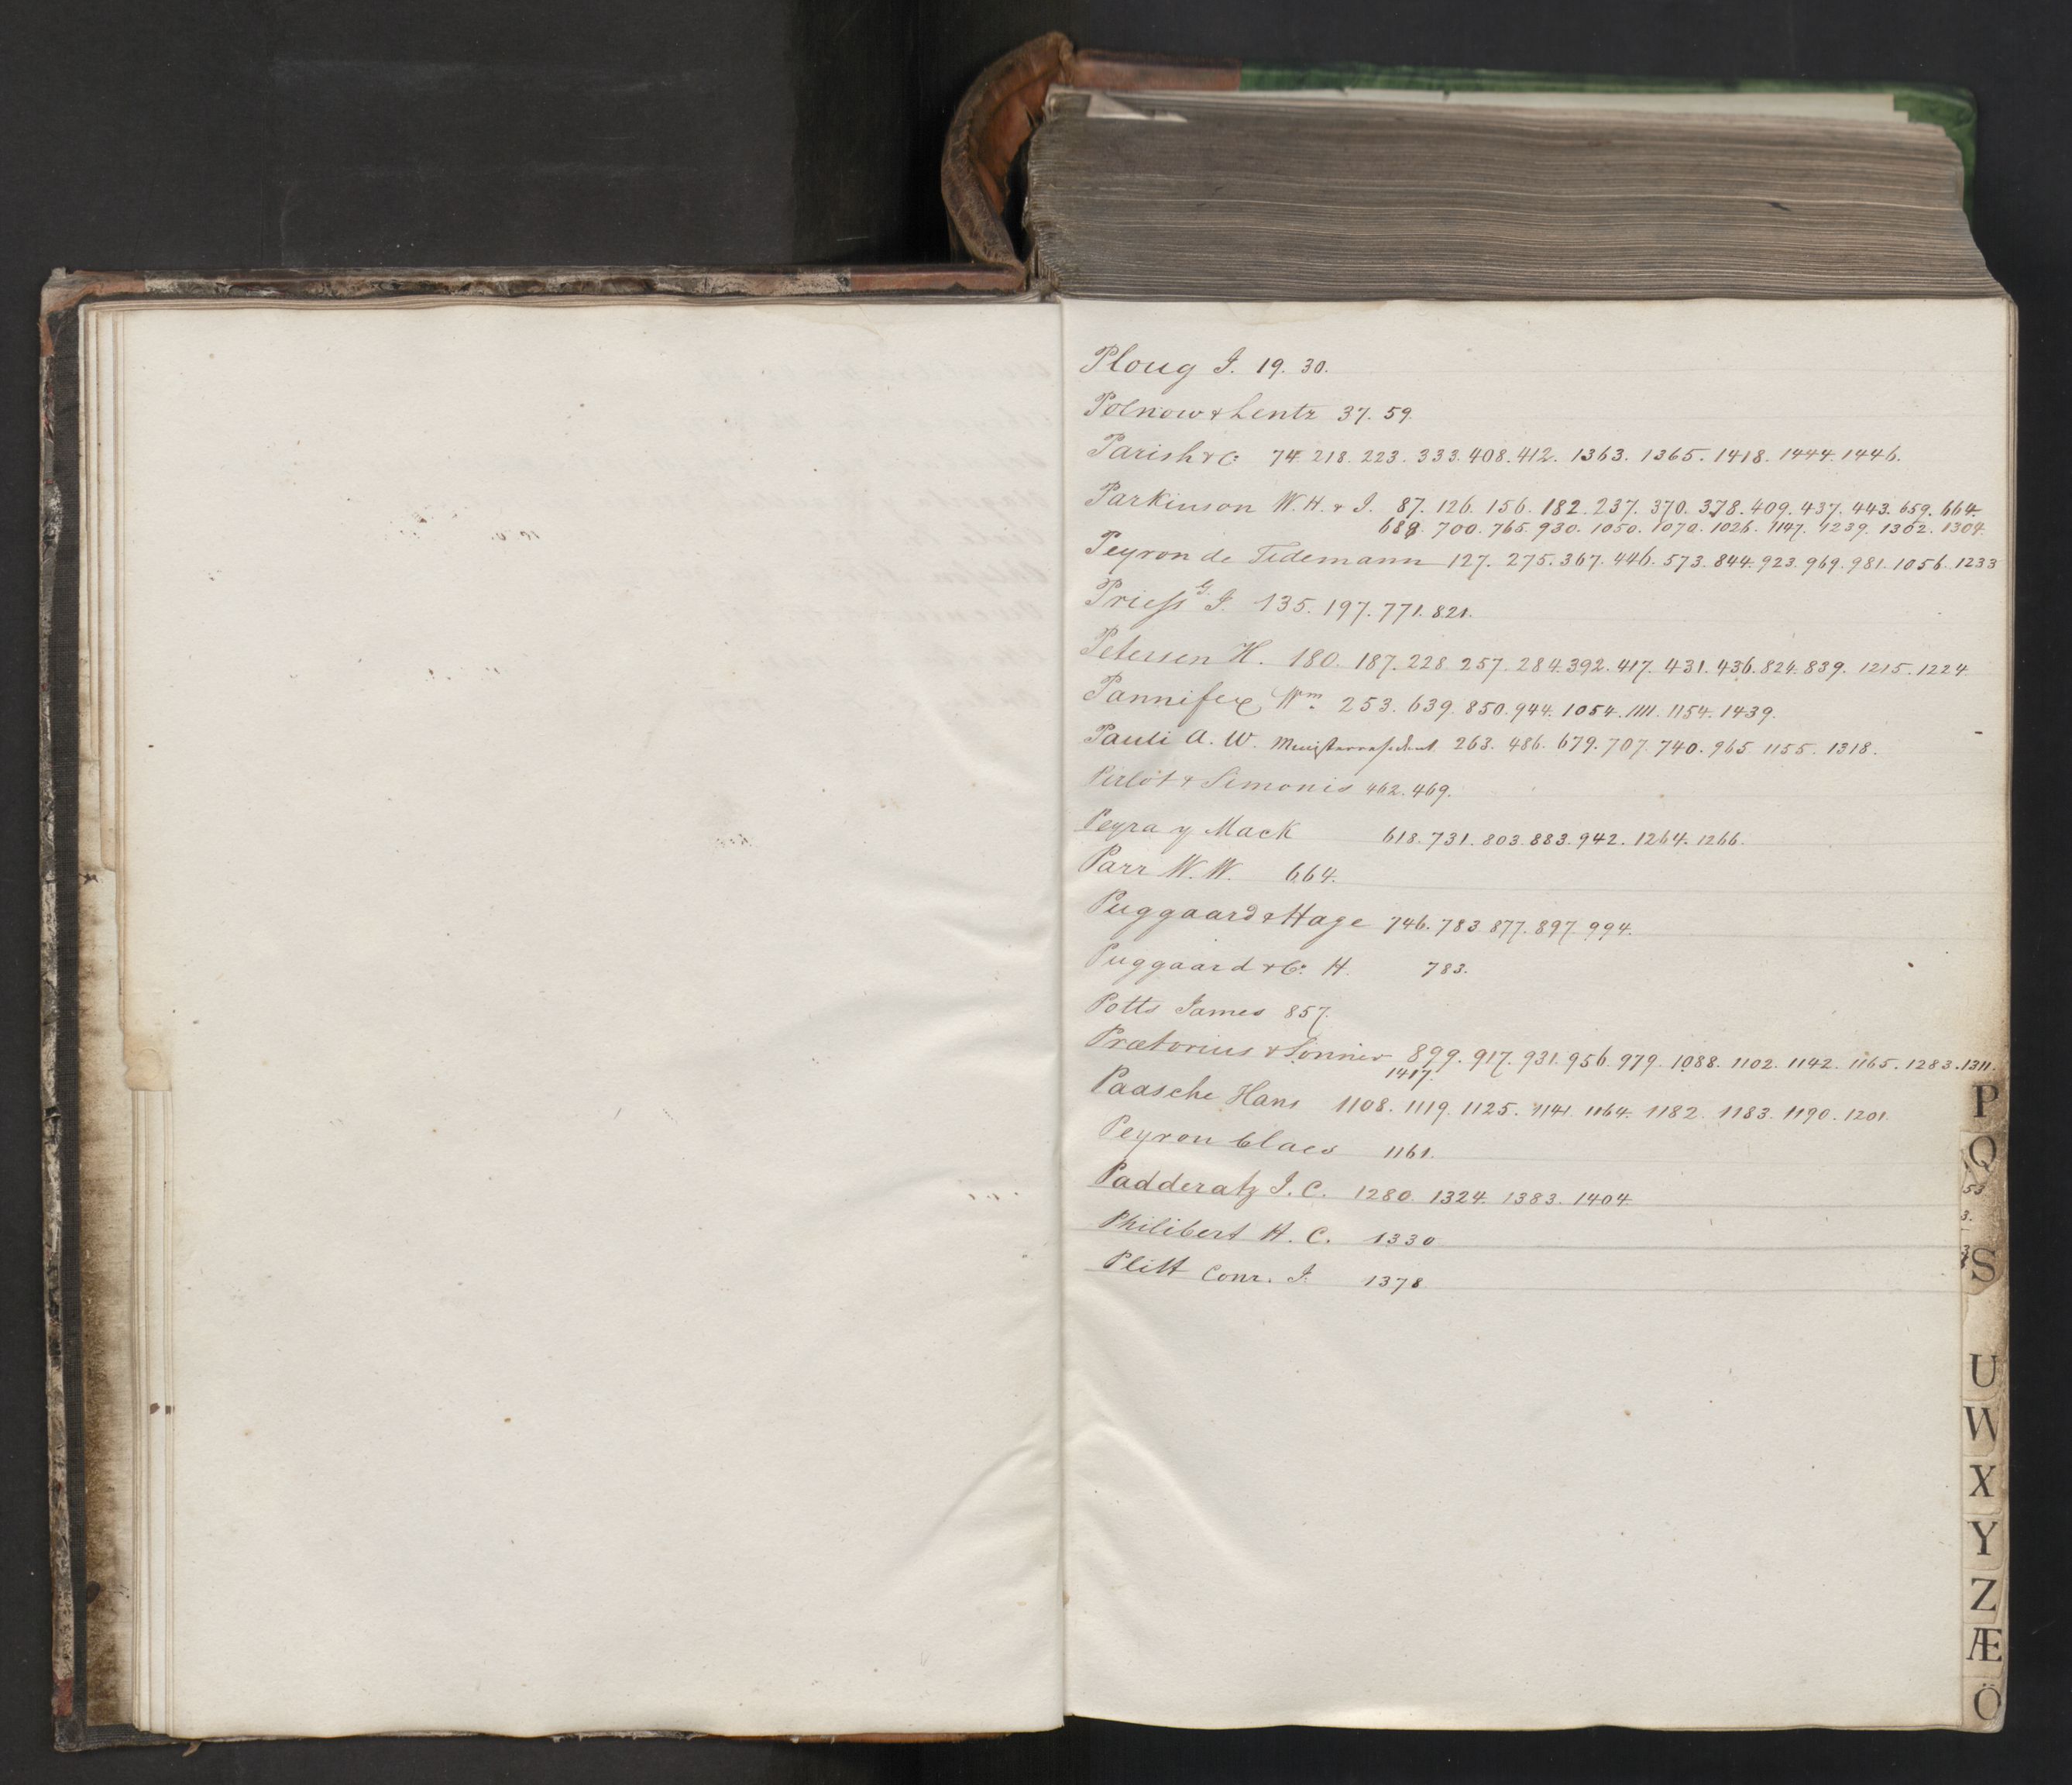 Ploug J. 19. 30.
Polnow & Lentz 37. 59.
Parish & C: 74. 218. 223. 333. 408. 412. 1363. 1365. 1418. 1444. 1446.
Parkinson W. H. & J. 87. 126. 156. 182. 237. 370. 378. 409. 437. 443. 659. 664.
688. 700. 765. 930. 1050. 1070. 1026. 1147. 1239. 1302. 1304.
Peyron de Tedemann 127. 275. 367. 446. 573. 844. 923. 969. 981. 1056. 1233
Priess G. J. 135. 197. 771. 821.
Petersen H. 180. 187. 228. 257. 284. 392. 417. 431. 436. 824. 839. 1215. 1224.
Pannifex Wm. 253. 639. 850. 944. 1054. 1111. 1154. 1439.
Pauli A. W. 263. 486. 679. 707. 740. 965. 1155. 1318.
Pirlot & Simonis 462. 469.
Peyra y Mack 618. 731. 803. 883. 942. 1264. 1266.
Parr W. W. 664.
Puggaard & Hage 746. 783. 877. 897. 994.
Puggaard & C: H. 783.
Potts James 857.
Prætorius & Sønner 899. 917. 931. 956. 979. 1088. 1102. 1142. 1165. 1283. 1311.
1417.
Paasche Hans 1108. 1119. 1125. 1141. 1164. 1182. 1183. 1190. 1201.
Peyron Claes 1161.
Padderatz J. C. 1280. 1324. 1383. 1404.
Philibert H. C. 1330.
Plitt Conr. J. 1378.
P
Q
53
3.
S
U
W
X
Y
Z
Æ
Ö